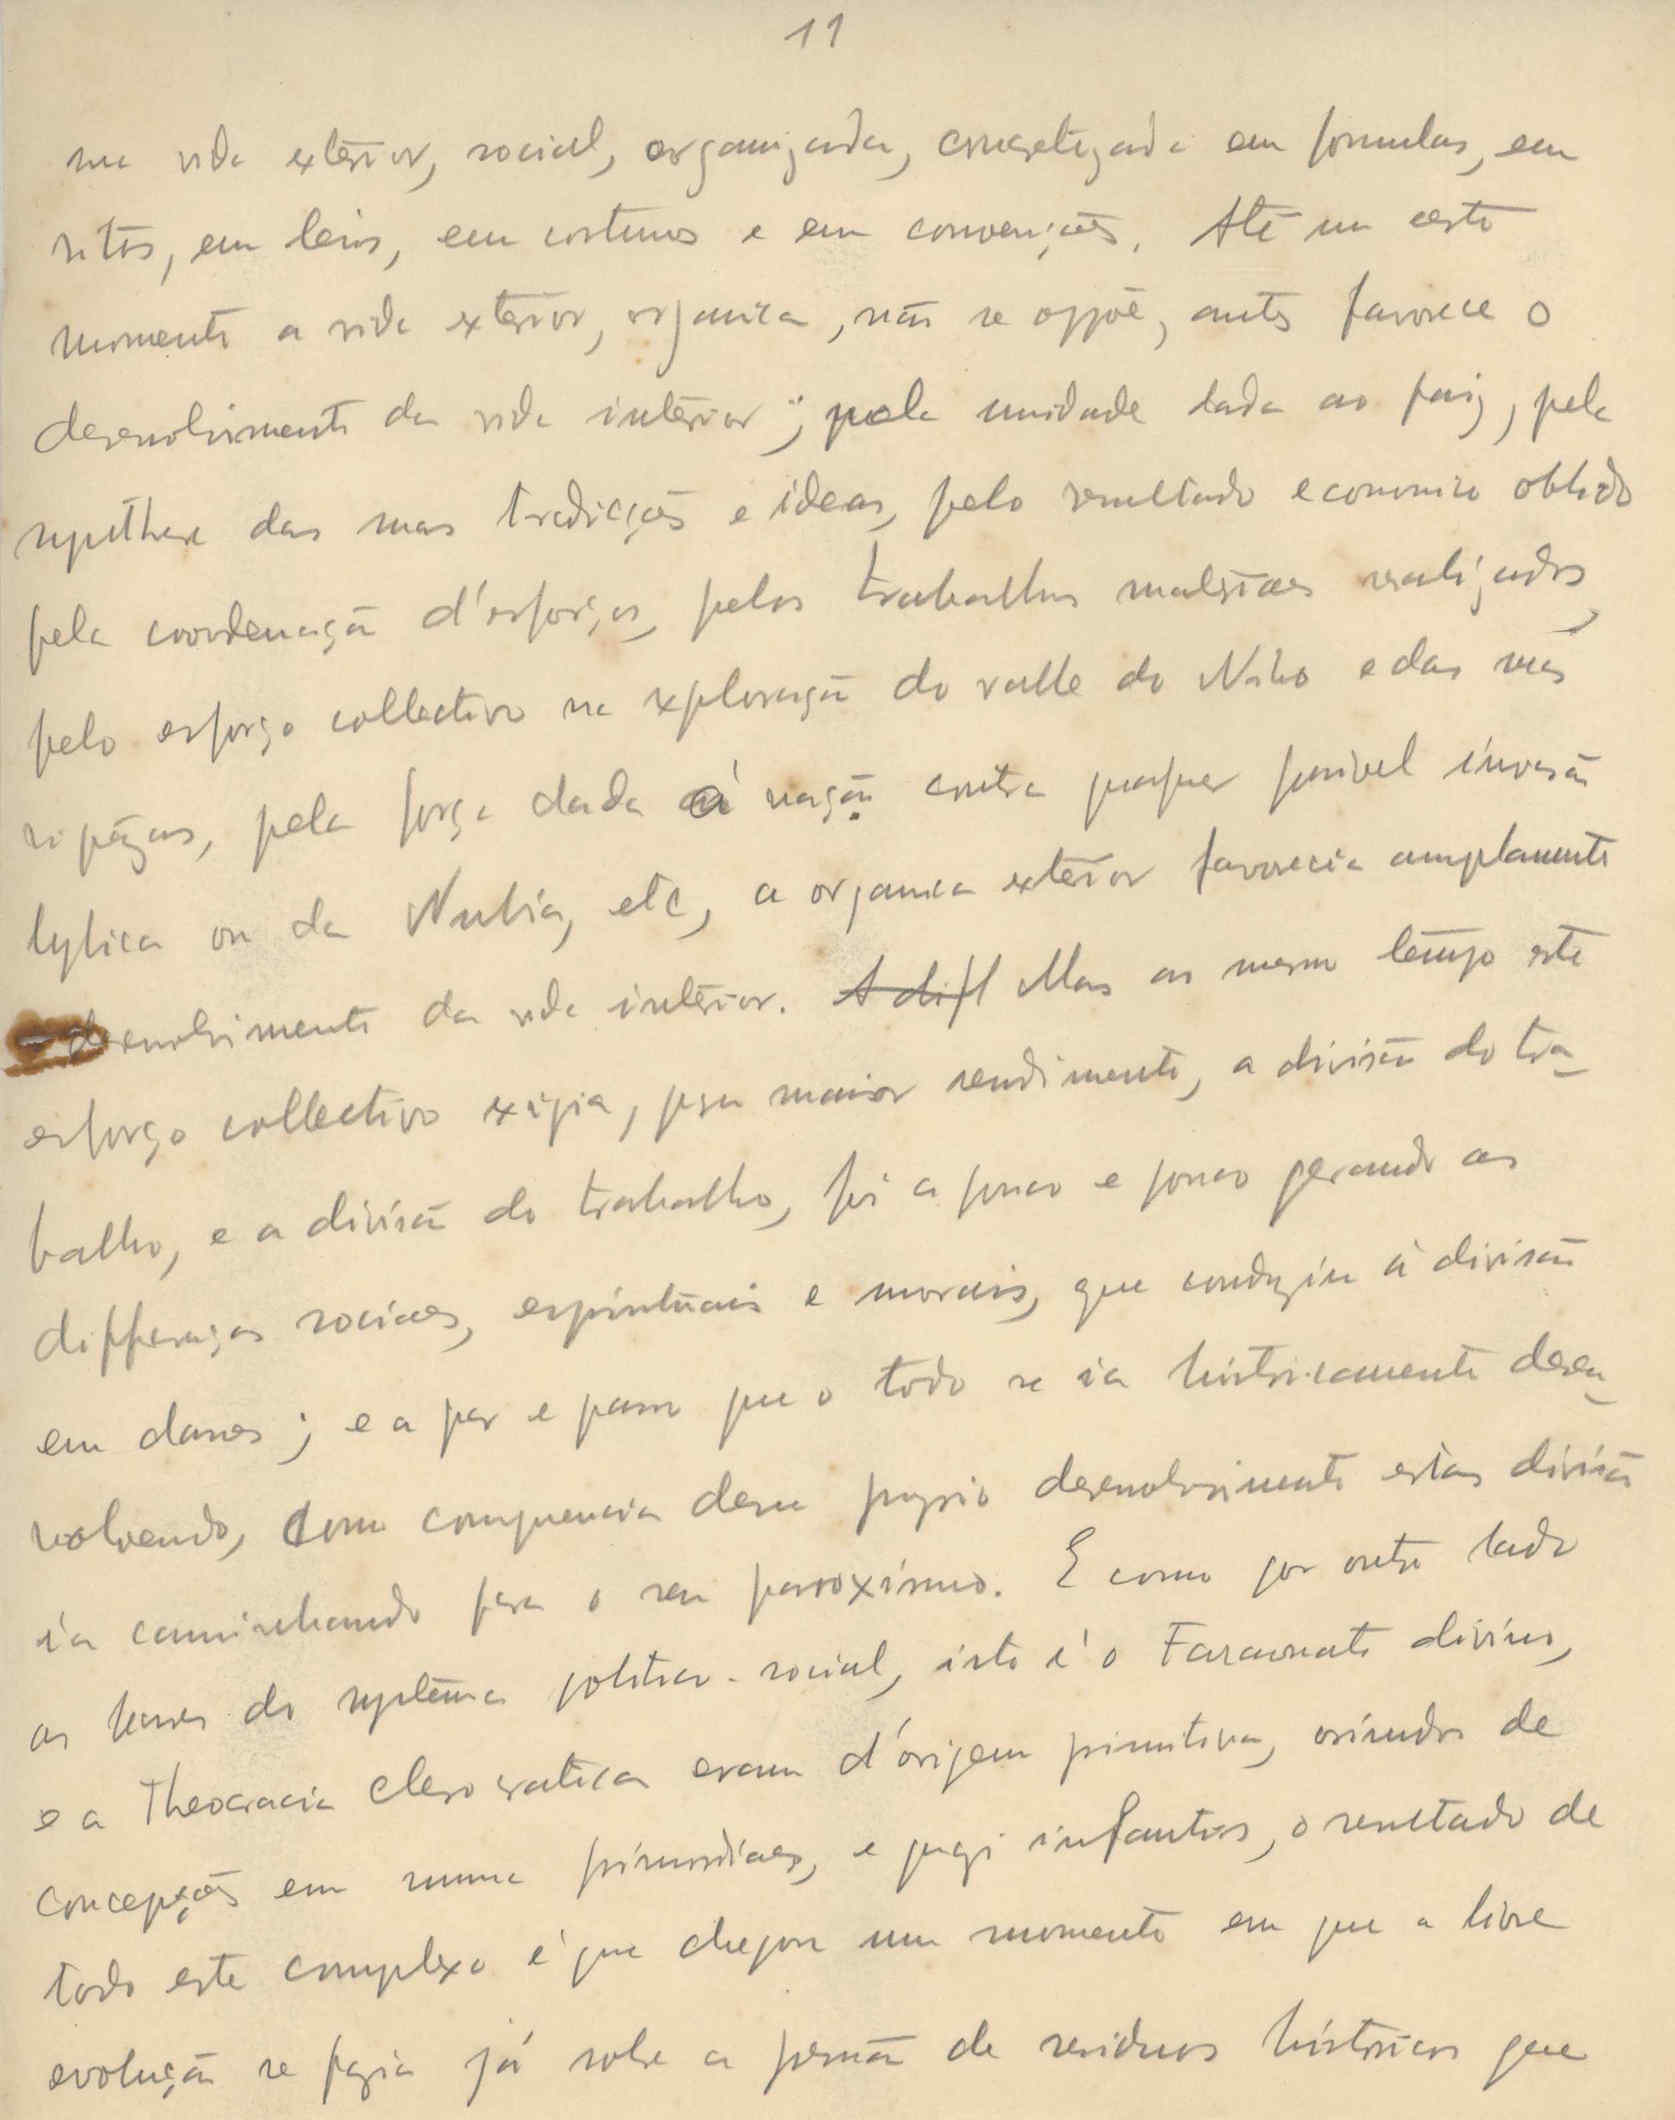 11
na vida exterior, social, organizada, concretizada em formulas, em
ritos, em leis, em costumes e em convenções. Até um certo
momento a vida exterior, organica, não se oppõe, antes favorece o
desenvolvimento da vida interior; pela unidade dada ao paiz, pela
synthese das suas tradicções e ideas, pelo resultado economico obtido
pela coordenação d'esforços, pelos trabalhos materiaes realizados,
pelo esforço collectivo na exploração do valle do Nilo e das vias
, pela força dada á nação contra qualquer possivel invasão
lybica ou da Nubia, etc, a organica exterior favorecia amplamente
o desenvolvimento da vida interior. Mas ao mesmo tempo este
esforço collectivo exigia, para maior rendimento, a divisão do tra-
balho, e a divisão do trabalho, foi a pouco e pouco gerando as
differenças sociaes, espirituais e morais, que conduziu á divisão
em classes; e a par e passo que o todo se ia historicamente desen-
volvendo, como consequencia desse proprio desenvolvimento estas divisões
ia caminhando para o seu paroxismo. E como por outro lado
as bases do systema politico-social, isto é o Faraonato divino,
e a Theocracia clerocratica eram d'origem primitiva, oriundos de
concepções em summa primordiaes, e quasi infantis, o resultado de
todo este complexo é que chegou um momento em que a livre
evolução se fazia já sobre a pressão de residuos historicos que